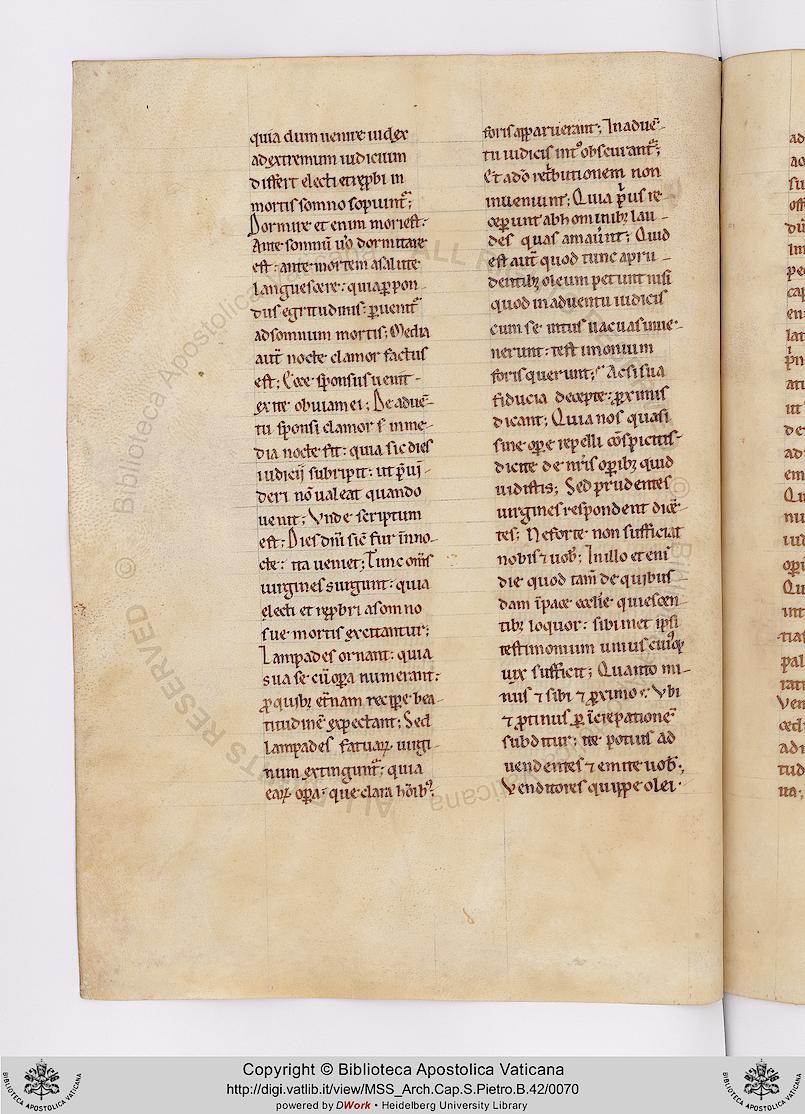 quia dum uenire iudex
adextremum iudicium
differt electi et rep̄bi in
mortis somno sopiunt᷑;
Dormire et enim mori est.
Ante somnū ũo dormitare
est: ante mortem a salute
languescere: quia ꝑ pon-
dus egritudinis: ꝑuenit᷑
adsomnum mortis; Media
aut̄ nocte clamor factus
est; Ecce sponsus uenit-
exite obuiam ei; De aduē-
tu sponsi clamor s̄ in me-
dia nocte fit: quia sic dies
iudicij subripit: ut p̄uí-
deri nō ualeat quando
uenit; Vnde scriptum
est; Dies dn̄i sic̄ fur īnno-
cte: ita ueniet; Tunc om̄s
uirgines surgunt: quia
electi et rep̄bri a somno
sue mortis excitantur;
Lampades ornant: quia
sua secū oꝑa numerant:
ꝓ quibꝫ et̄nam recipe bea-
titudinē expectant; Sed
lampades fatuaꝝ uirgi-
num extingunt᷑: quia
eaꝝ oꝑa: que clara hōibꝰ
foris apparuerant; In aduē-
tu iudicis intꝰ obscurant᷑;
Et adō retͥbutionem non
inueniunt; Quia pͥus re-
ceꝑunt ab hominibꝫ lau-
des quas amaũnt; Quid
est aut̄ quod tunc apru-
dentibꝫ oleum petunt nisi
quod in aduentu iudicis
cum se intus uacuas inue-
nerunt: testimonium
foris querunt; Ac si sua
fiducia decepte: ꝓximis
dicant; Quia nos quasi
sine oꝑe repelli cōspicitis-
dicite de nr̄is oꝑibꝫ quid
uidistis; Sed prudentes
uirgines respondent dicē-
tes; Ne forte non sufficiat
nobis ⁊ uob̄; In illo et enī
die quod tam̄ de quibus-
dam īpace ecclīe quiescen-
tibꝫ loquor: sibimet ipsi
testimonium unius cuiꝰqꝫ
uix sufficit; Quanto mi-
nus ⁊ sibi ⁊ ꝓximo; Vbi
⁊ ꝓtinus ꝑ īcrepationē
subditur; ite potius ad
uendentes ⁊ emite uob̄;
Venditores quippe olei
Copyright © Biblioteca Apostolica Vaticana
http://digi.vatlib.it/view/MSS_Arch.Cap.S.Pietro.B.42/0070
powered by DWork • Heidelberg University Library